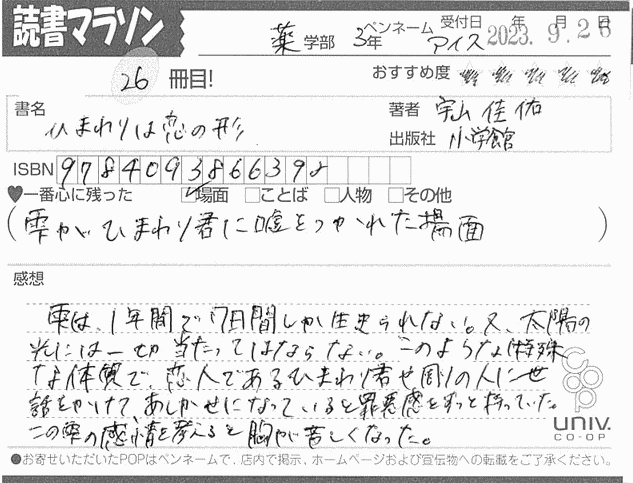 読書マラソン
薬 学部 3年 ペンネーム アイス 受付日 2023年9月26日
26 冊目!
おすすめ度 ★★★★★
書名 ひまわりは恋の形
著者 宇山佳佑
出版社 小学館
ISBN 9784093866392
♥一番心に残った ☑場面 □ことば □人物 □その他
(雫がひまわり君に嘘をつかれた場面)
感想
雫は、1年間で7日間しか生きられない。又、太陽の
光には一切当たってはならない。このような特殊
な体質で、恋人であるひまわり君や周りの人に世
話をかけて、あしかせになっていると罪悪感をずっと持っていた。
この雫の感情を考えると胸が苦しくなった。
coop
univ.
CO-OP
●お寄せいただいたPOPはペンネームで、店内で掲示、ホームページおよび宣伝物への転載をご了承ください。